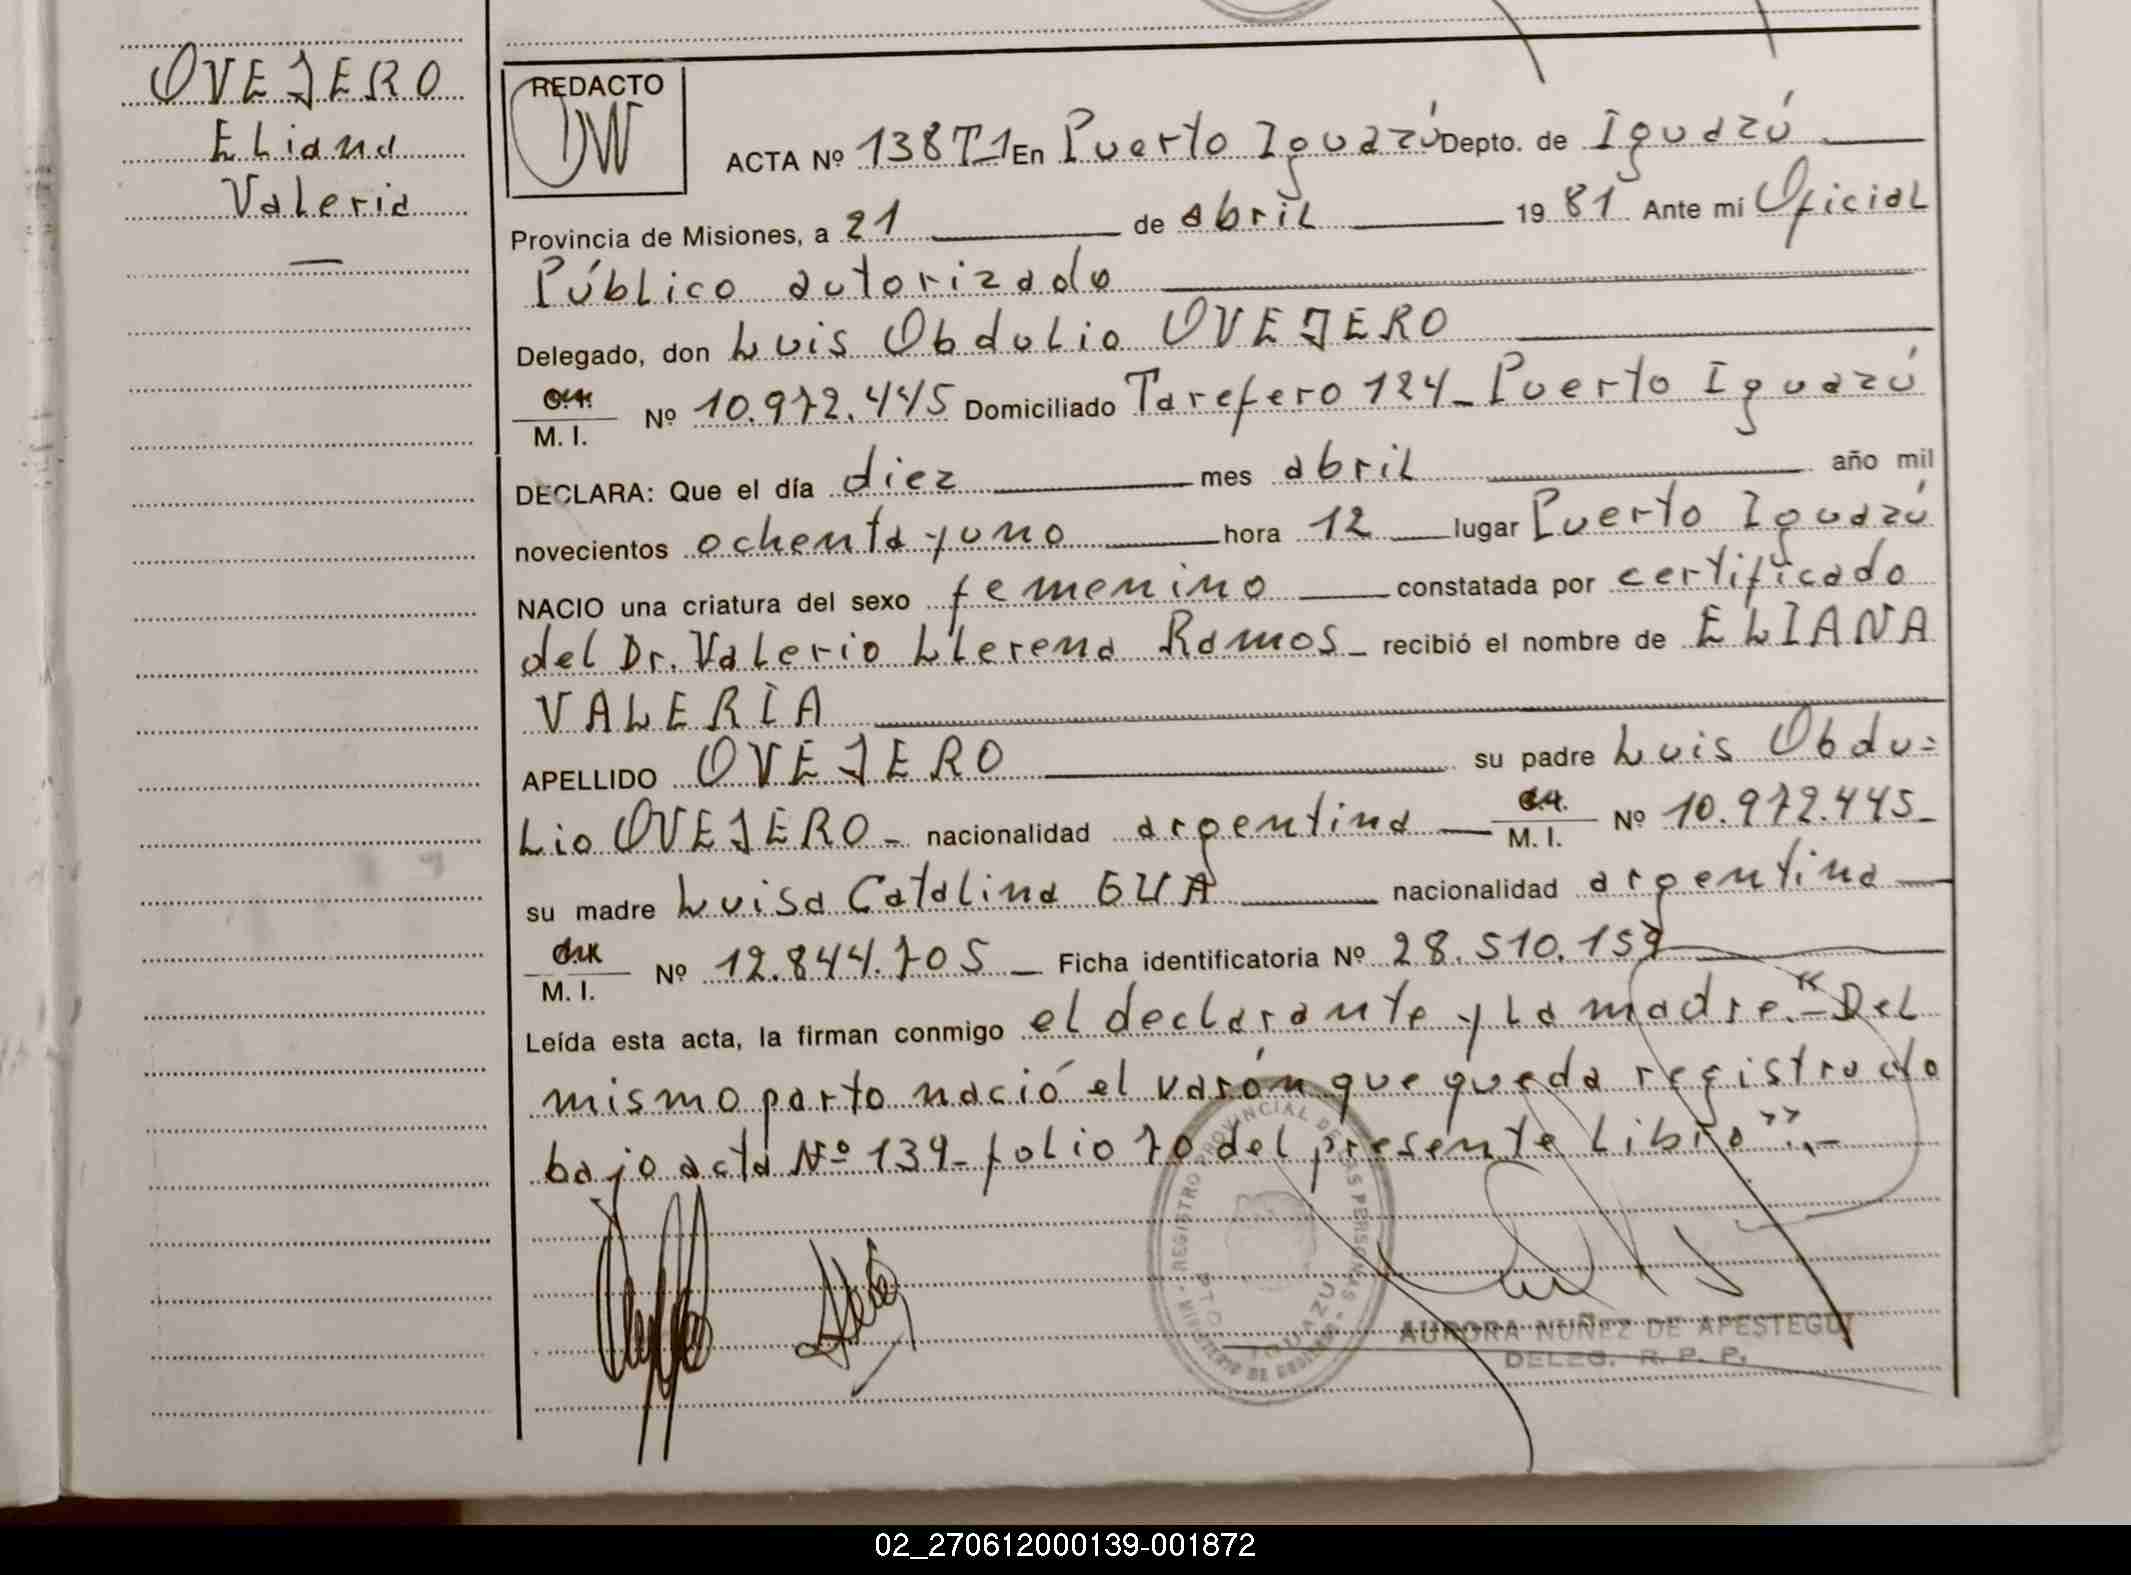 OVEJERO
Eliana
Valeria
REDACTO
ACTA Nº 138T1 En Puerto Iguazú Depto. de Iguazú
Provincia de Misiones, a 21 de abril 1981 Ante mi Oficial
Público autorizado
Delegado, don Luis Obdulio OVEJERO
M. I. Nº 10.972.445 Domiciliado Tarefero 124_ Puerto Iguazú
DECLARA: Que el día diez mes abril año mil
novecientos ochenta y uno hora 12 lugar Puerto Iguazú
NACIO una criatura del sexo femenino constatada por certificado
del Dr. Valerio Llerena Ramos_ recibió el nombre de ELIANA
VALERIA
APELLIDO OVEJERO su padre Luis Obdu=
lio OVEJERO_ nacionalidad argentina M. I. Nº 10.972.445_
su madre Luisa Catalina nacionalidad argentina
M. I. Nº 12.844.705_ Ficha identificatoria Nº 28.510.157
Leída esta acta, la firman conmigo el declarante y la madre._"Del
mismo parto nació el varón que queda registrado
bajo acta Nº 139_ folio 70 del presente libro"._
REGISTRO PROVINCIAL DE LAS PERSONAS
PTO. IGUAZU
AURORA NUÑEZ DE APESTEGUI
DELEG. R. P. P.
02_270612000139-001872